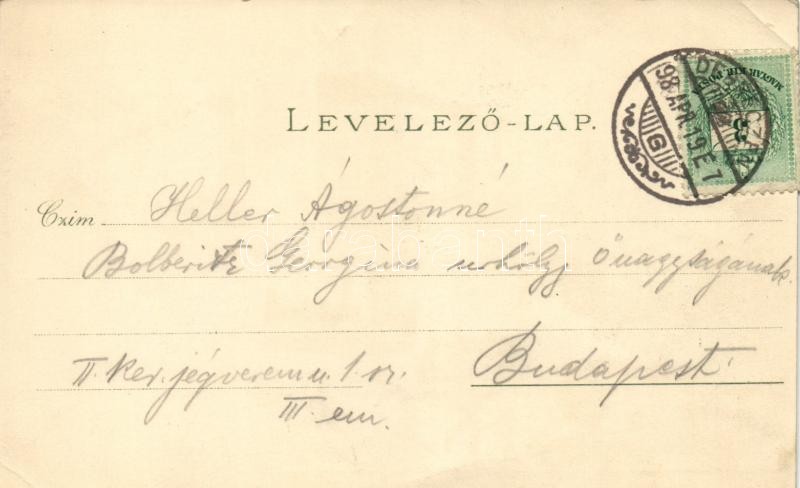 LEVELEZŐ-LAP.
98 APR. 19 E 7
G
MAGYAR KIR. POSTA
Czim Heller Ágostonné
Bolberitz Georgina urhölgy Őnagyságának
II. ker. jégverem u. 1 sz. Budapest
III em.
darabanth